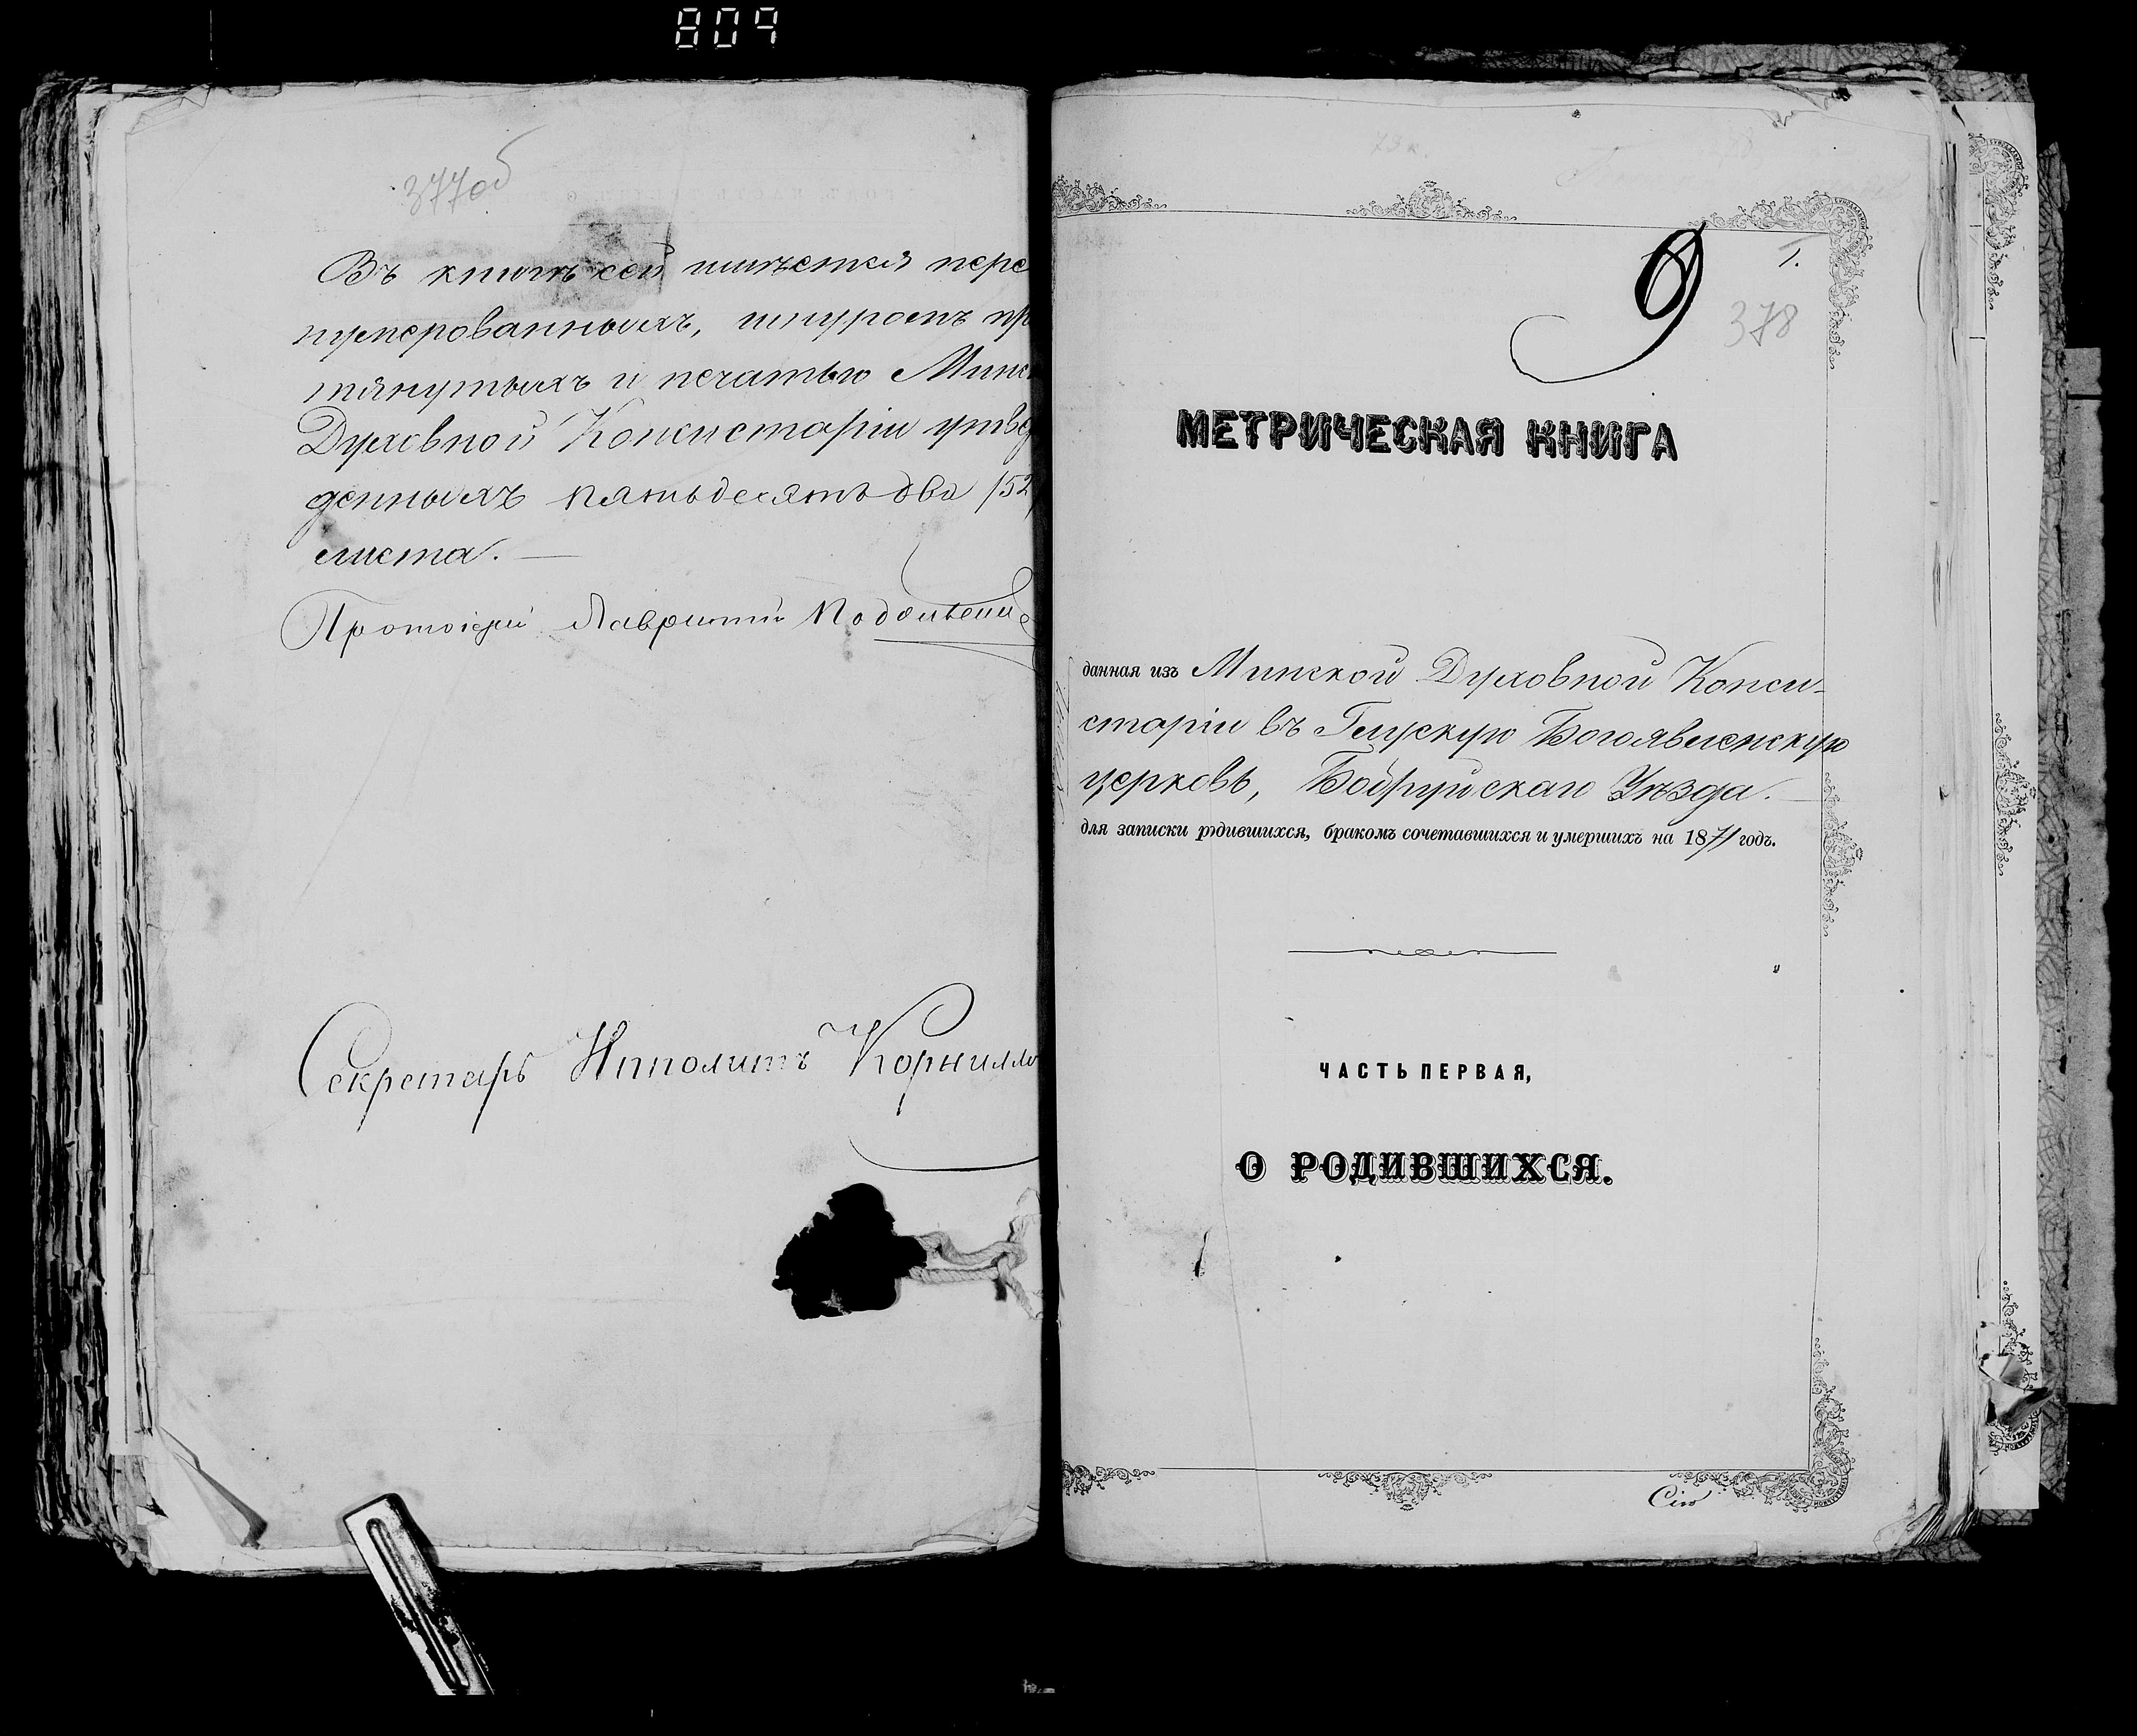 809
377об
Въ книгѣ сей имѣется пере
нумерованныхъ, шнуромъ пр
тянутыхъ и печатью Минс
Духовной Консисторіи утвер
денныхъ пятьдесятъ два /52/
листа. —
Протоіерей Лаврентій
Секретарь Ипполитъ Корнилло
1.
378
МЕТРИЧЕСКАЯ КНИГА
данная изъ Минской Духовной Конси-
сторіи въ Глускую Богоявленскую
церковь, Бобруйскаго Уѣзда. —
для записки родившихся, бракомъ сочетавшихся и умершихъ на 1871 годъ.
ЧАСТЬ ПЕРВАЯ,
О РОДИВШИХСЯ.
Сію